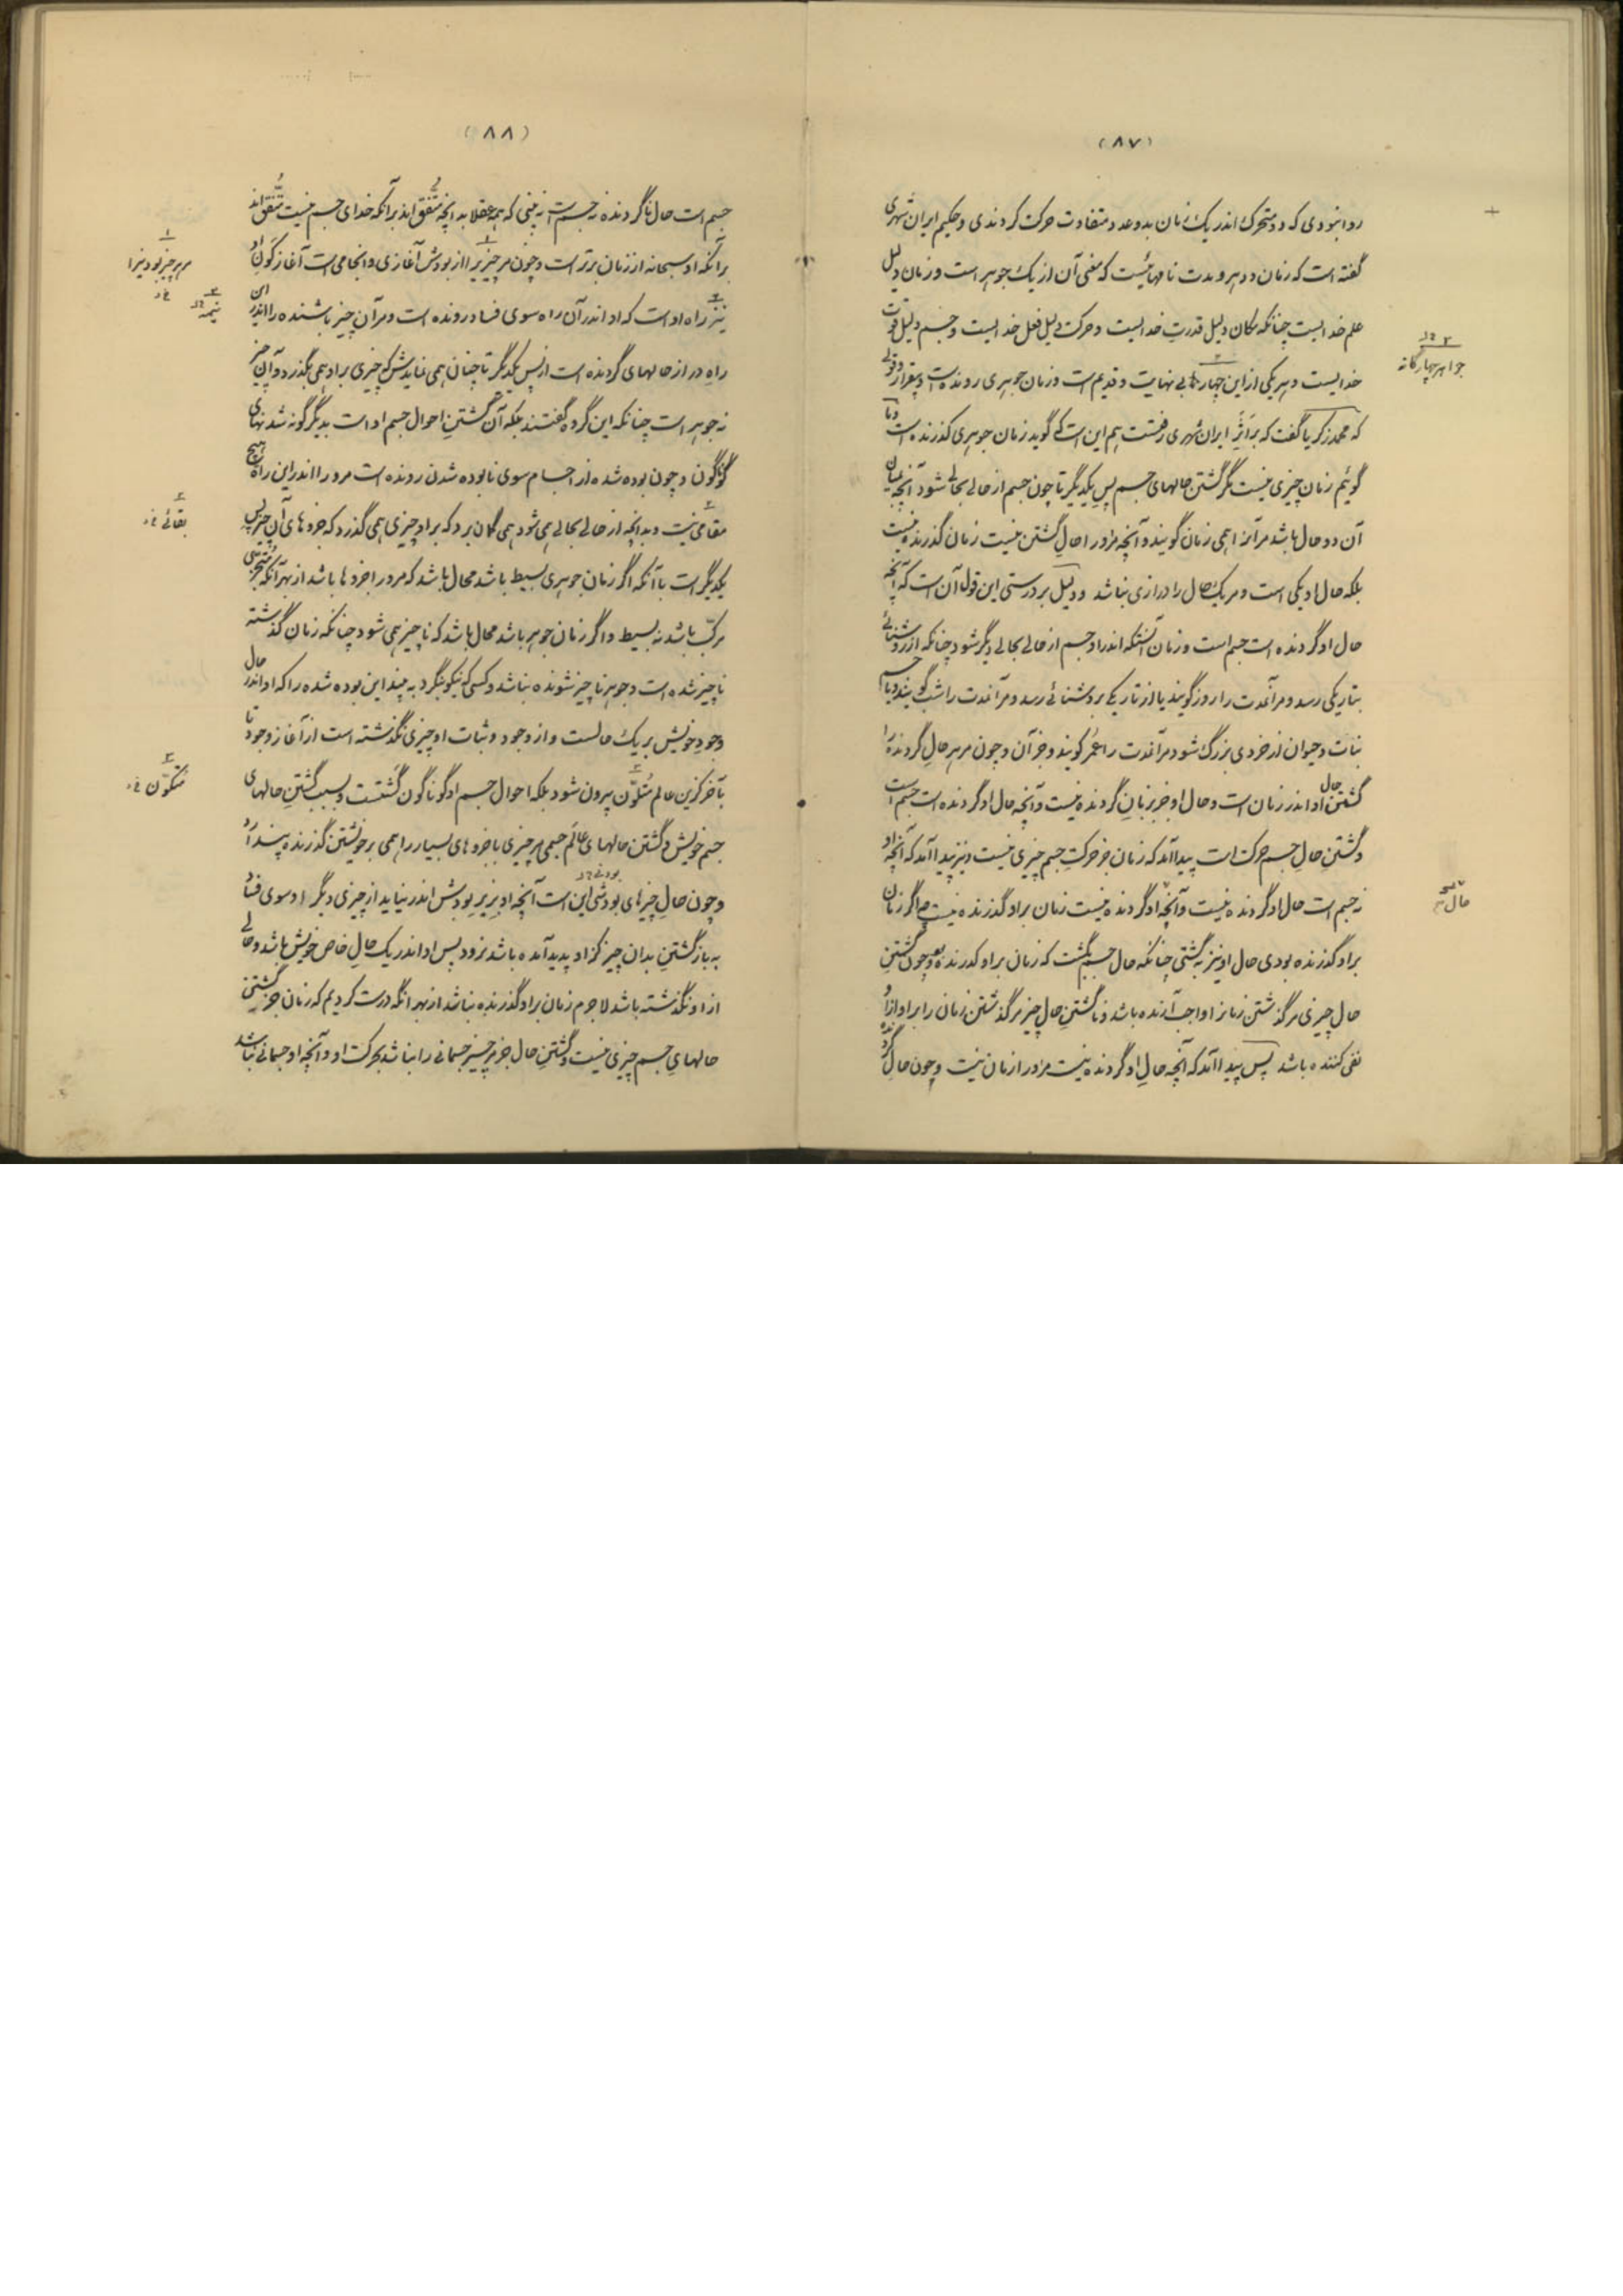 (۸۷)
روا نبودی که دو متحرک اندر یک زمان بدو عدد متفاوت حرکت کردندی و حکیم ایران شهری
گفته است که زمان و دهر و مدت نامهائیست که معنی آن از یک جوهر است و زمان دلیل
علم خدایست چنانکه مکان دلیل قدرت خدایست و حرکت دلیل فعل خدایست و جسم دلیل قوت
خدایست و هر یکی از این چهار بی نهایت و قدیم است و زمان جوهری رونده است و بیقرار و قولی
که محمد زکریا گفت که بر اثر ایران شهری رفتست هم این است که گوید زمان جوهری گذرنده است و ما
گوئیم زمان چیزی نیست مگر گشتن حالهای جسم پس یکدیگر تا چون جسم از حالی بحالی شود آنچه بمیان
آن دو حال باشد مر آنرا همی زمان گویند و آنچه مر او را حال گشتن نیست زمان گذرنده نیست
بلکه حال او یکی است و مر یک حال را درازی نباشد و دلیل بر درستی این قول آن است که آنچه
حال او گردنده است جسم است و زمان آنستکه اندر او جسم از حالی بحالی دیگر شود چنانکه از روشنائی
بتاریکی رسد و مر آنمدت را روز گویند یا از تاریکی بروشنائی رسد و مر آنمدت را شب گویند و یا جسم
نبات و حیوان از خردی بزرگ شود مر آنمدت را عمر گویند و جز آن و چون مر هر حال گردنده را
گشتن حال او اندر زمان است و حال او جز بزمان گردنده نیست و آنچه حال او گردنده است جسم است
و گشتن حال جسم حرکت است پیدا آمد که زمان جز حرکت جسم چیزی نیست و نیز پیدا آمد که آنچه او
نه جسم است حال او گردنده نیست و آنچه او گردنده نیست زمان بر او گذرنده نیست چه اگر زمان
بر او گذرنده بودی حال او نیز بگشتی چنانکه حال جسم بگشت که زمان بر او گذرنده بود و چون گشتن
حال چیزی مر گذشتن زمانرا واجب آرنده باشد و ناگشتن حال چیز مر گذشتن زمان را بر او از او
نفی کننده باشد پس پیدا آمد که آنچه حال او گردنده نیست مر او را زمان نیست و چون حال گرد
۳
جواهر چهارگانه
حال
(۸۸)
جسم است حال ناگردنده نه جسم است نه بینی که همه عقلا بدانچه متفق اند بر آنکه خدای جسم نیست متفق اند
بر آنکه او سبحانه از زمان برتر است و چون مر چیز را از بودش آغازی و انجامی است آغاز کون او
نیز راه او است که او اندر آن راه سوی فساد رونده است و مر آن چیز باشنده را اندر این
راه دراز حالهای گردنده است از پس یکدیگر تا چنان همی نمایدش که چیزی بر او همی بگذرد و آن چیز
نه جوهر است چنانکه این گروه گفتند بلکه آن گشتن احوال جسم او است بدیگر گونه شدنهای
گوناگون و چون بوده شده از اجسام سوی نابوده شدن رونده است مر او را اندر این راه هیچ
مقامی نیست و بدانچه از حالی بحالی همی شود همی گمان برد که بر او چیزی همی گذرد که جزوهای آن چیز پس
یکدیگر است با آنکه اگر زمان جوهری بسیط باشد محال باشد که مر او را جزوها باشد از بهر آنکه متجزی
مرکب باشد نه بسیط و اگر زمان جوهر باشد محال باشد که ناچیز همی شود چنانکه زمان گذشته
ناچیز شده است و جوهر ناچیز شونده نباشد و کسی که نیکو بنگرد به بیند این بوده شده را که او اندر حال
وجود خویش بر یک حالست و از وجود و ثبات او چیزی نگذشته است از آغاز وجود تا
بآخر کزین عالم متلون بیرون شود بلکه احوال جسم او گوناگون گشتست و بسبب گشتن حالهای
جسم خویش و گشتن حالهای عالم جسمی هر چیزی با جزوهای بسیار را همی بر خویشتن گذرنده پندارد
و چون حال چیزهای بودشی این است آنچه او بزیر بودش اندر نیاید از چیزی دیگر او سوی فنا
به باز گشتن بدان چیز کز او پدید آمده باشد نرود پس او اندر یک حال خاص خویش باشد و حالی
از او نگذشته باشد لاجرم زمان بر او گذرنده نباشد از بهر آنکه درست کردیم که زمان جز گشتن
حالهای جسم چیزی نیست و گشتن حال جز مر چیز جسمانی را نباشد بحرکت او و آنچه او جسمانی نباشد
۱
مر هر چیز بودنیرا
۲
نیمه
۳
بقائی
۴
متکون